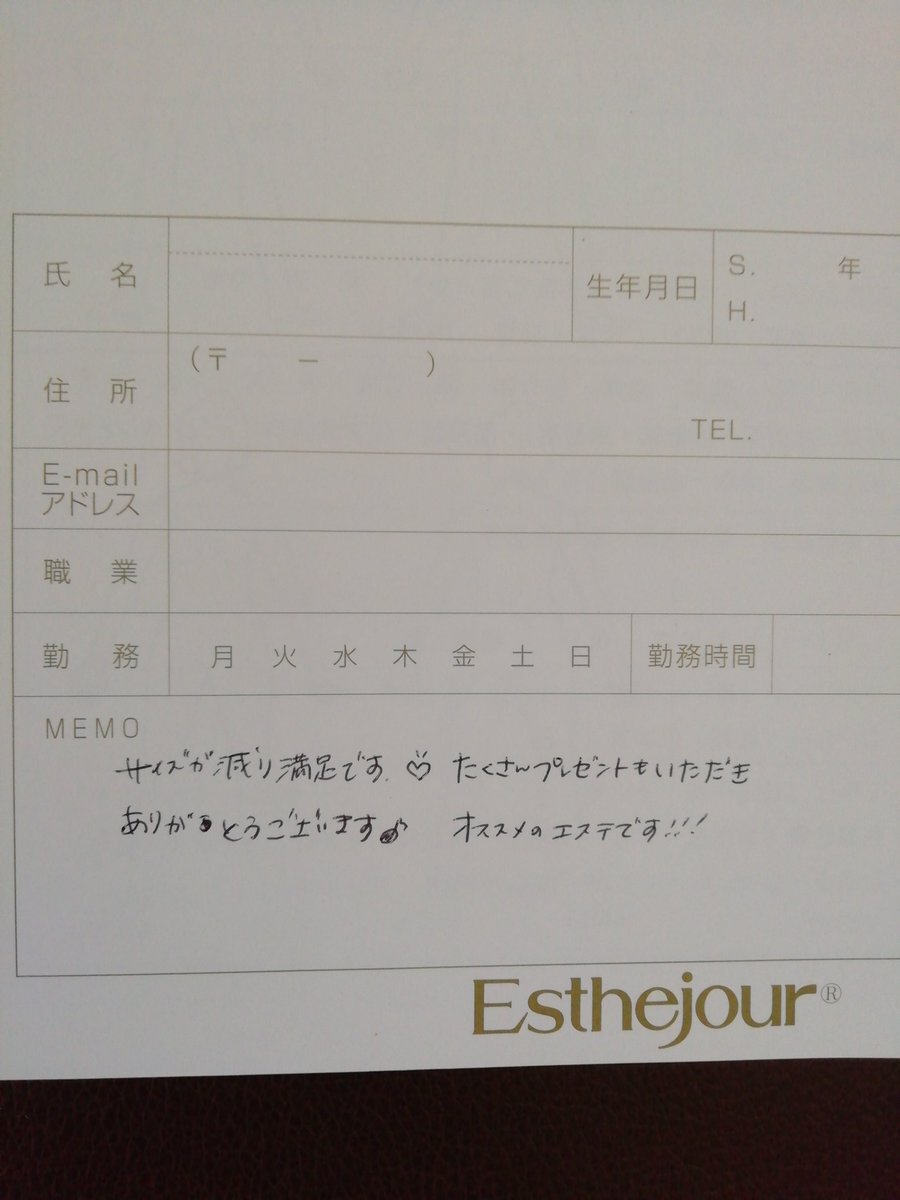 氏名 生年月日 S. 年
H.
住所 (〒 － )
TEL.
E-mail
アドレス
職業
勤務 月 火 水 木 金 土 日 勤務時間
MEMO
サイズが減り満足です。♡ たくさんプレゼントもいただき
ありがとうございます♪ オススメのエステです!!!
Esthejour®